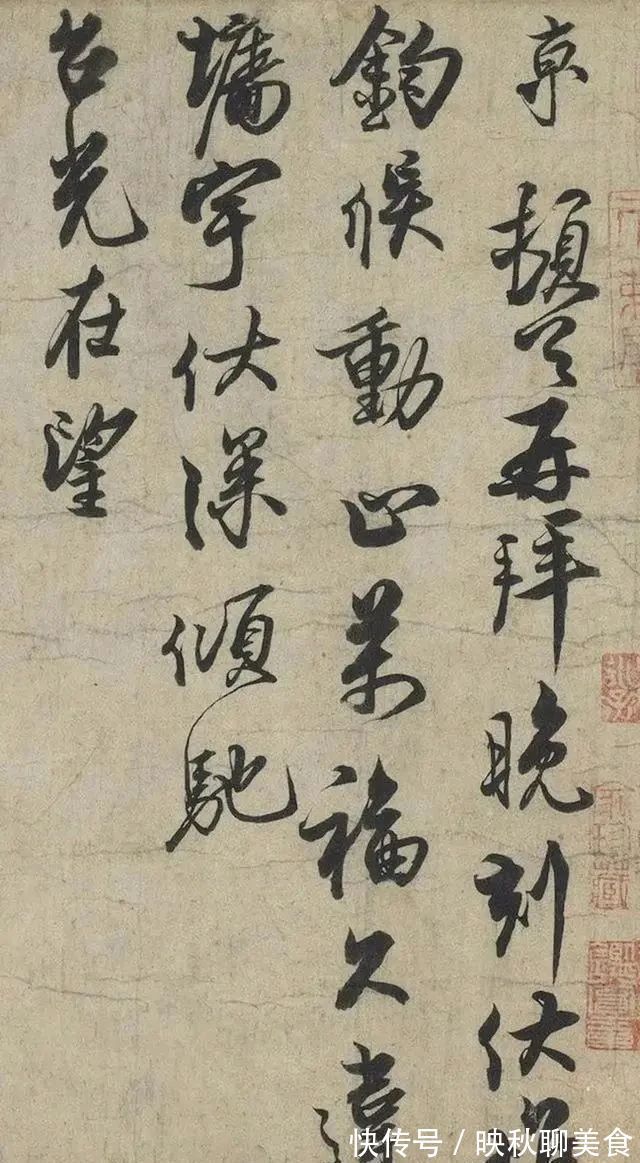 京頓首再拜晚刻伏
鈞候動止萬福久違
墻宇伏深傾馳
台光在望
快传号 / 映秋聊美食